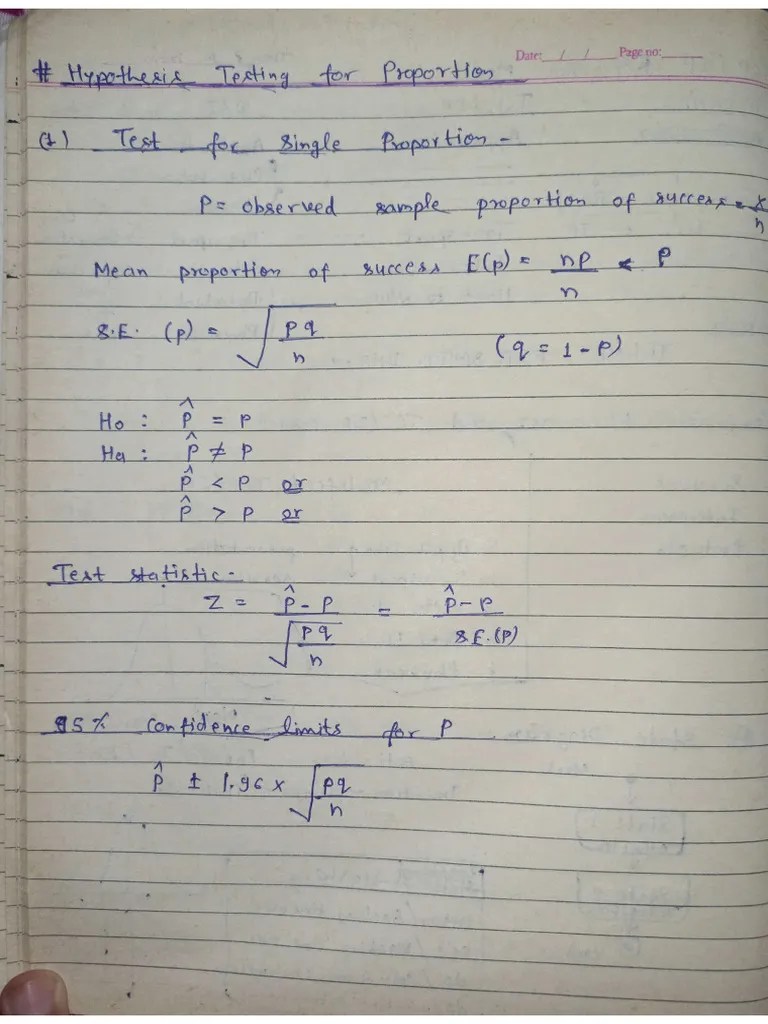 Date: / / Page no:
# Hypothesis Testing for Proportion
(1) Test for Single Proportion -
P = observed sample proportion of success = x/n
Mean proportion of success E(p) = nP/n = P
S.E. (p) = √(pq/n) (q = 1 - P)
Ho : P̂ = P
Ha : P̂ ≠ P
P̂ < P or
P̂ > P or
Test statistic -
Z = (P̂ - P)/√(pq/n) = (P̂ - P)/S.E.(p)
95% confidence limits for P
P̂ ± 1.96 × √(pq/n)